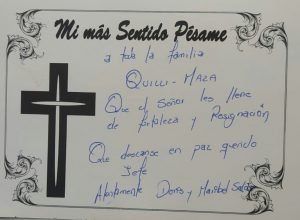 Mi más Sentido Pésame
a toda la familia
QUILLI - MAZA
Que el Señor les llene
de fortaleza y Resignación
Que descanse en paz querido
Jefe
Atentamente Doris y Maribel